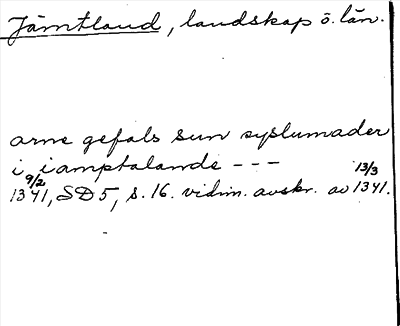 Jämtland, landskap ö. län.
arne gefals sun syslumader
i iamptalande - - -
9/2 1341, SD 5, s. 16. vidim. avskr. av 13/3 1341.